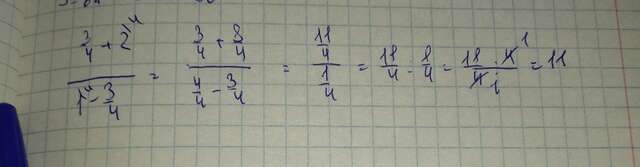 (3/4 + 2^\4) / (1^4 - 3/4) = (3/4 + 8/4) / (4/4 - 3/4) = (11/4) / (1/4) = 11/4 : 8/4 = (11 · 4 1) / (4 1) = 11